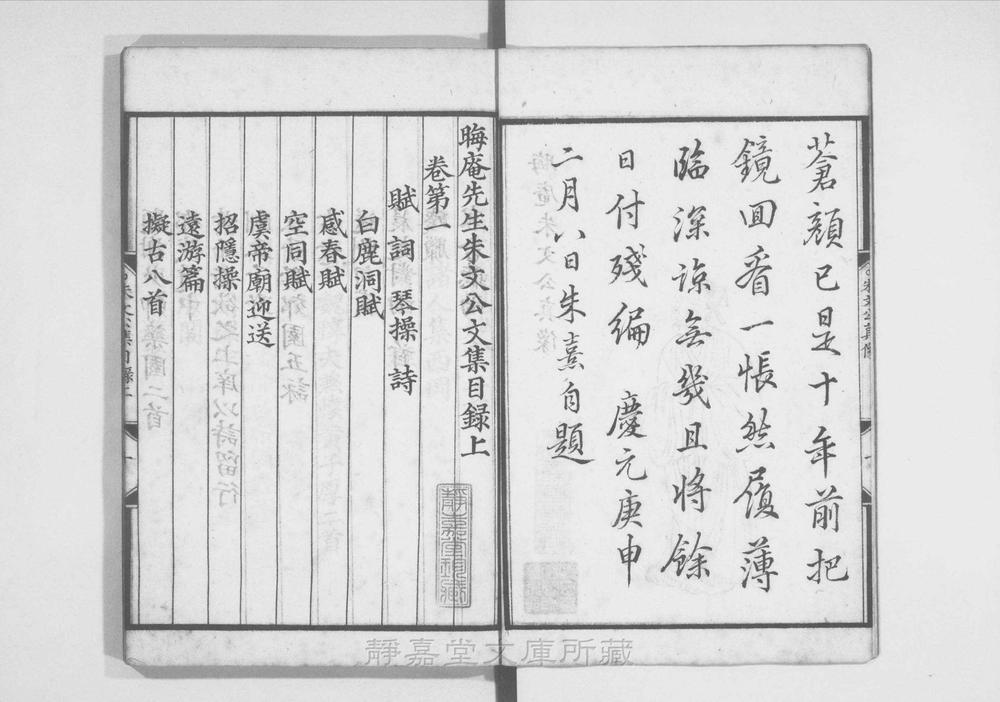 蒼顔已是十年前把
鏡囬看一悵然履薄
臨深諒無幾且將餘
日付殘編 慶元庚申
二月八日朱熹自題
晦庵先生朱文公文集目録上
卷第一
賦 詞 琴操 詩
白鹿洞賦
感春賦
空同賦
虞帝廟迎送
招隱操
遠游篇
擬古八首
靜嘉堂文庫所藏